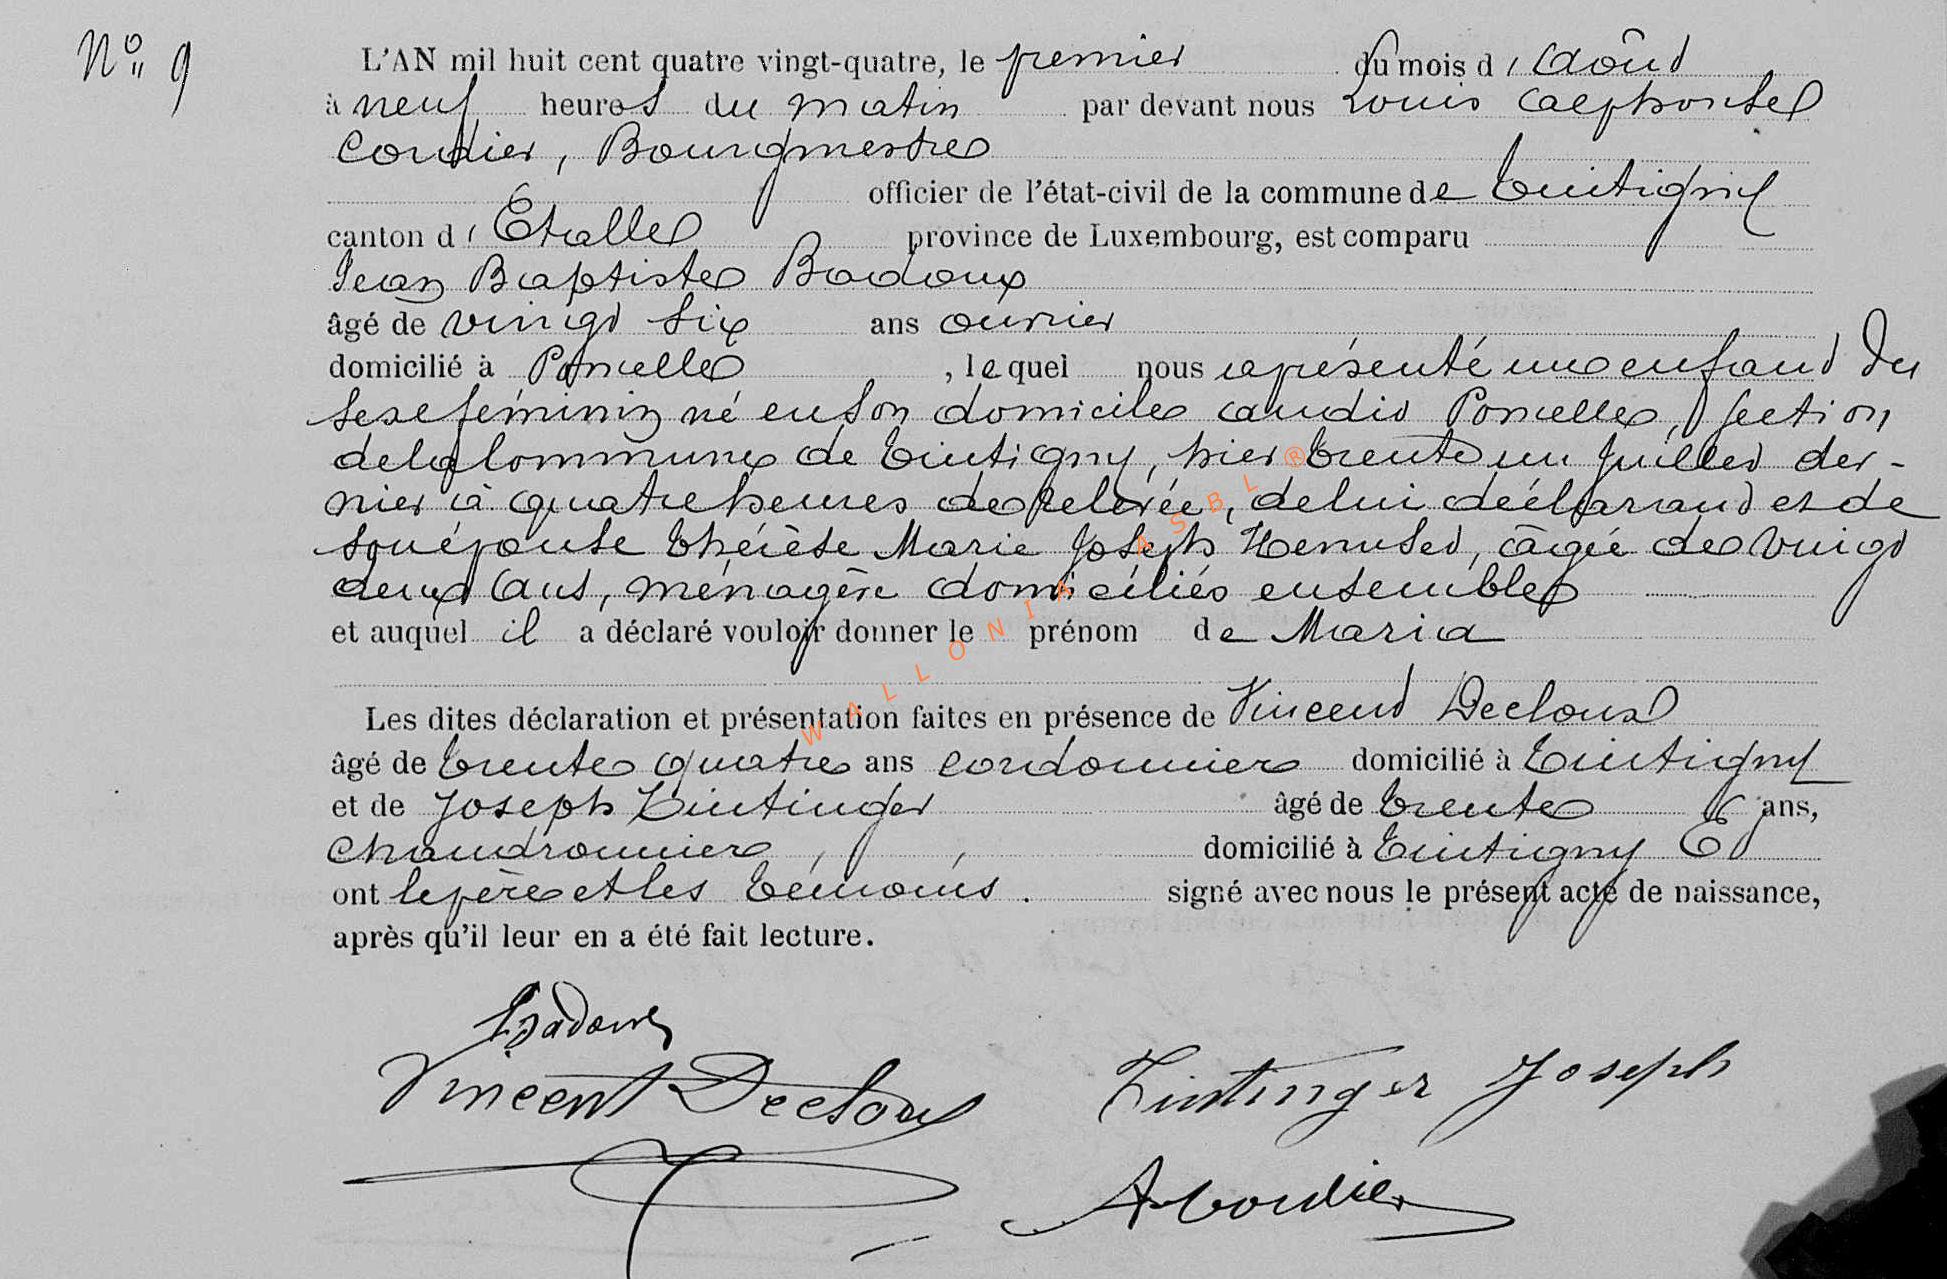 N° 9
L'AN mil huit cent quatre vingt-quatre, le premier du mois d'Août
à neuf heures du matin par devant nous Louis Alphonse
Cordier, Bourgmestre
officier de l'état-civil de la commune de Tintigny
canton d'Etalle province de Luxembourg, est comparu
Jean Baptiste Badoux
âgé de vingt six ans ouvrier
domicilié à Poncelle, lequel nous a présenté un enfant du
sexe féminin né en son domicile audit Poncelle, section
de la Commune de Tintigny, hier trente un Juillet der-
nier à quatre heures de relevée, de lui déclarant et de
son épouse Thérèse Marie Joseph Henuset, âgée de vingt
deux ans, ménagère domiciliés ensemble
et auquel il a déclaré vouloir donner le prénom de Maria
Les dites déclaration et présentation faites en présence de Vincent Decloux
âgé de trente quatre ans cordonnier domicilié à Tintigny
et de Joseph Zintinger âgé de trente ans,
Chaudronnier domicilié à Tintigny Et
ont le père et les témoins. signé avec nous le présent acte de naissance,
après qu'il leur en a été fait lecture.
Badoux
Vincent Decloux Zintinger Joseph
A Cordier
WALLONIA ASBL ®